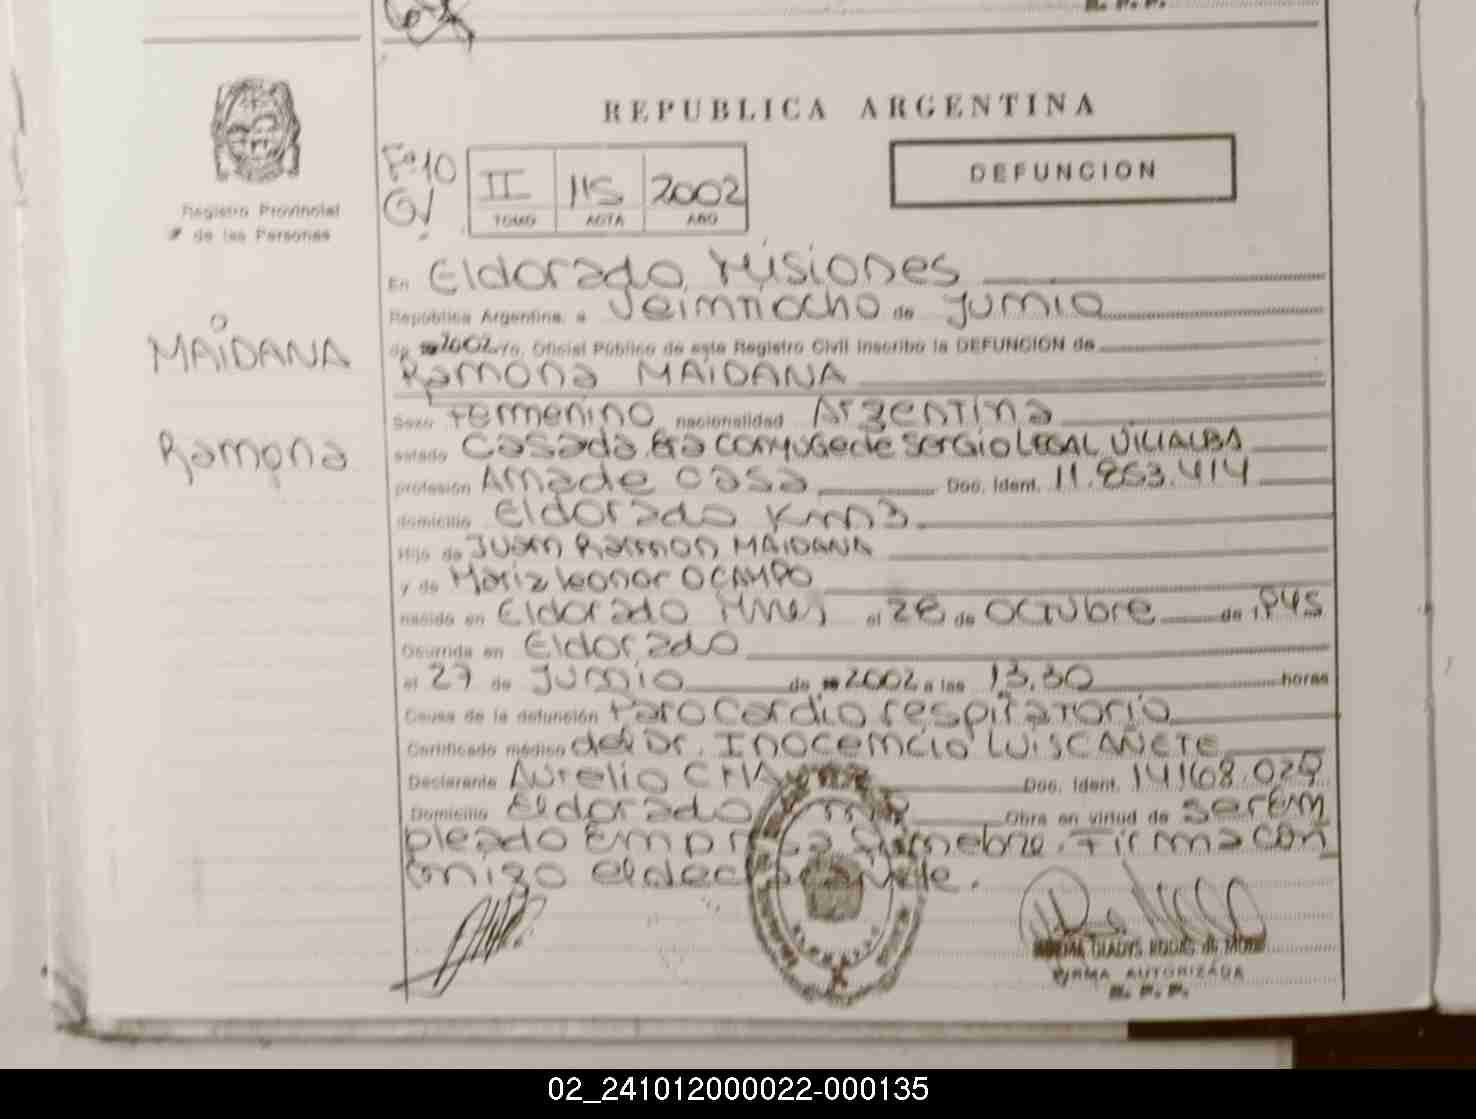 REPUBLICA ARGENTINA
DEFUNCION
Fº 10
II 115 2002
TOMO ACTA AÑO
Registro Provincial
de las Personas
MAIDANA
Ramona
En Eldorado, Misiones
República Argentina, a Veintiocho de Junio
de 2002 Yo, Oficial Público de este Registro Civil inscribo la DEFUNCION de
Ramona MAIDANA
Sexo Femenino nacionalidad Argentina
estado Casada. Era conyuge de Sergio LEGAL VILLALBA
profesión Ama de casa Doc. Ident. 11.863.414
domicilio Eldorado Km 3
Hijo de Juan Ramon MAIDANA
y de Maria Leonor OCAMPO
nacido en Eldorado Mnes el 28 de Octubre de 1945
Ocurrida en Eldorado
el 27 de Junio de 2002 a las 13.30 horas
Causa de la defunción Paro Cardio respiratorio
Certificado médico del Dr. Inocencio Luis CAÑETE
Declarante Aurelio Doc. Ident. 14.168.029
Domicilio Eldorado Obra en virtud de ser em
pleado Empresa funebre. Firma con
migo el declarante.
NORMA GLADYS RODAS de
FIRMA AUTORIZADA
R. P. P.
R. P. P.
02_241012000022-000135